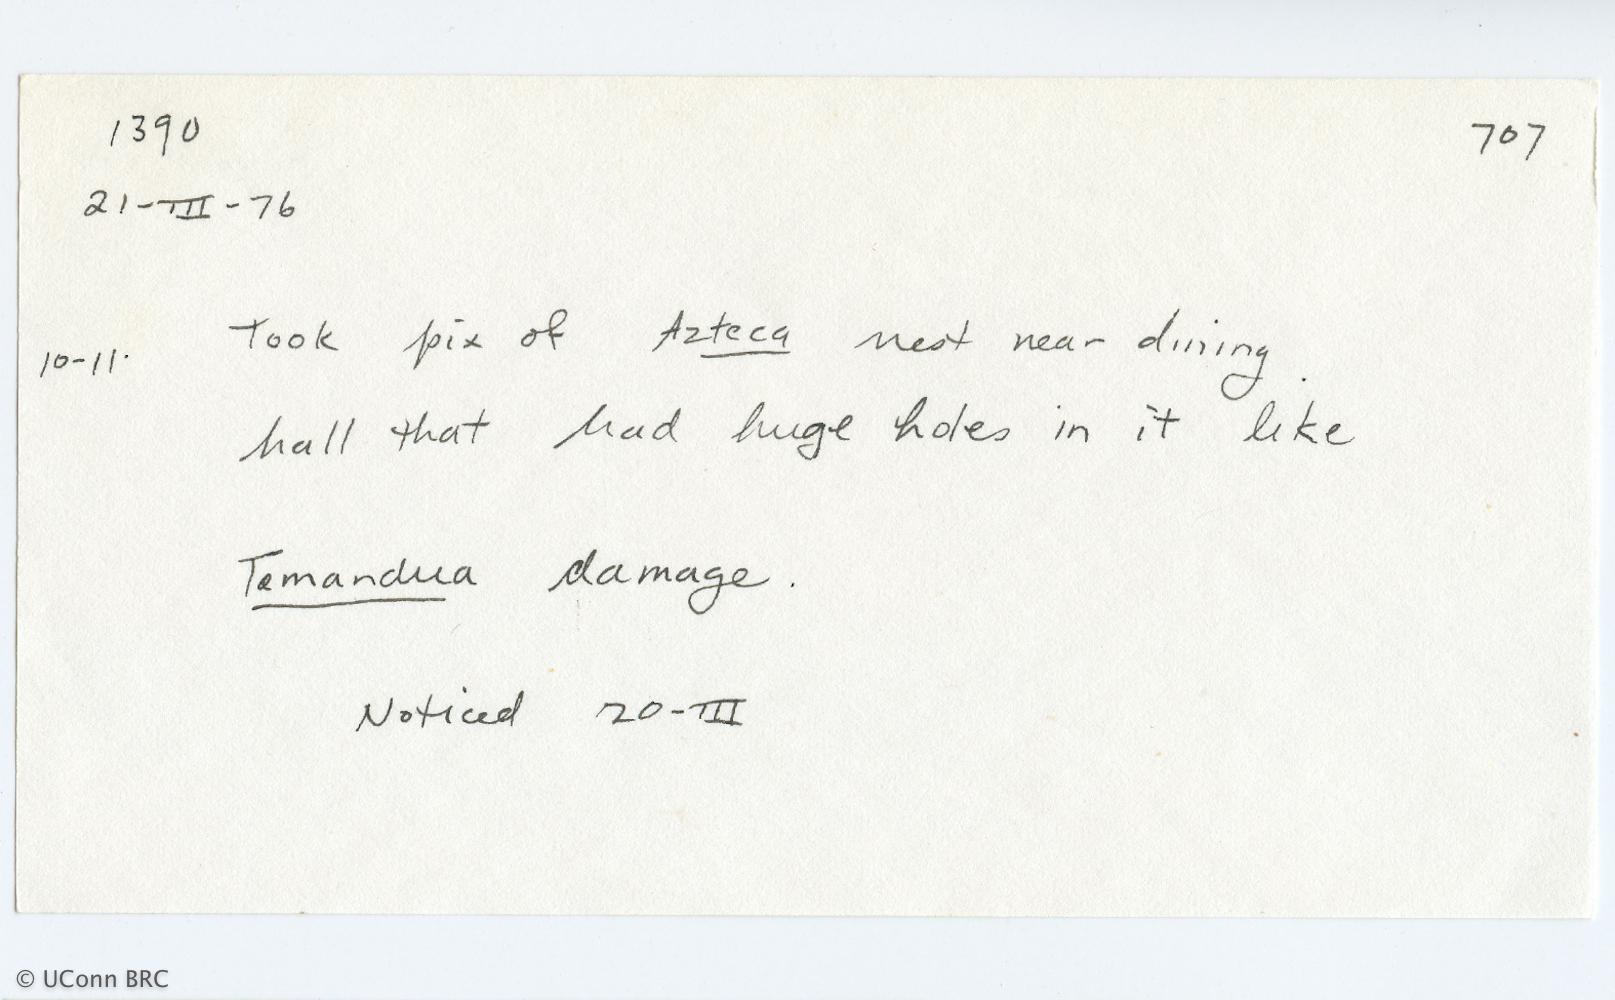 1390
707
21-III-76
10-11
Took pix of Azteca nest near dining
hall that had huge holes in it like
Tamandua damage.
Noticed 20-III
© UConn BRC